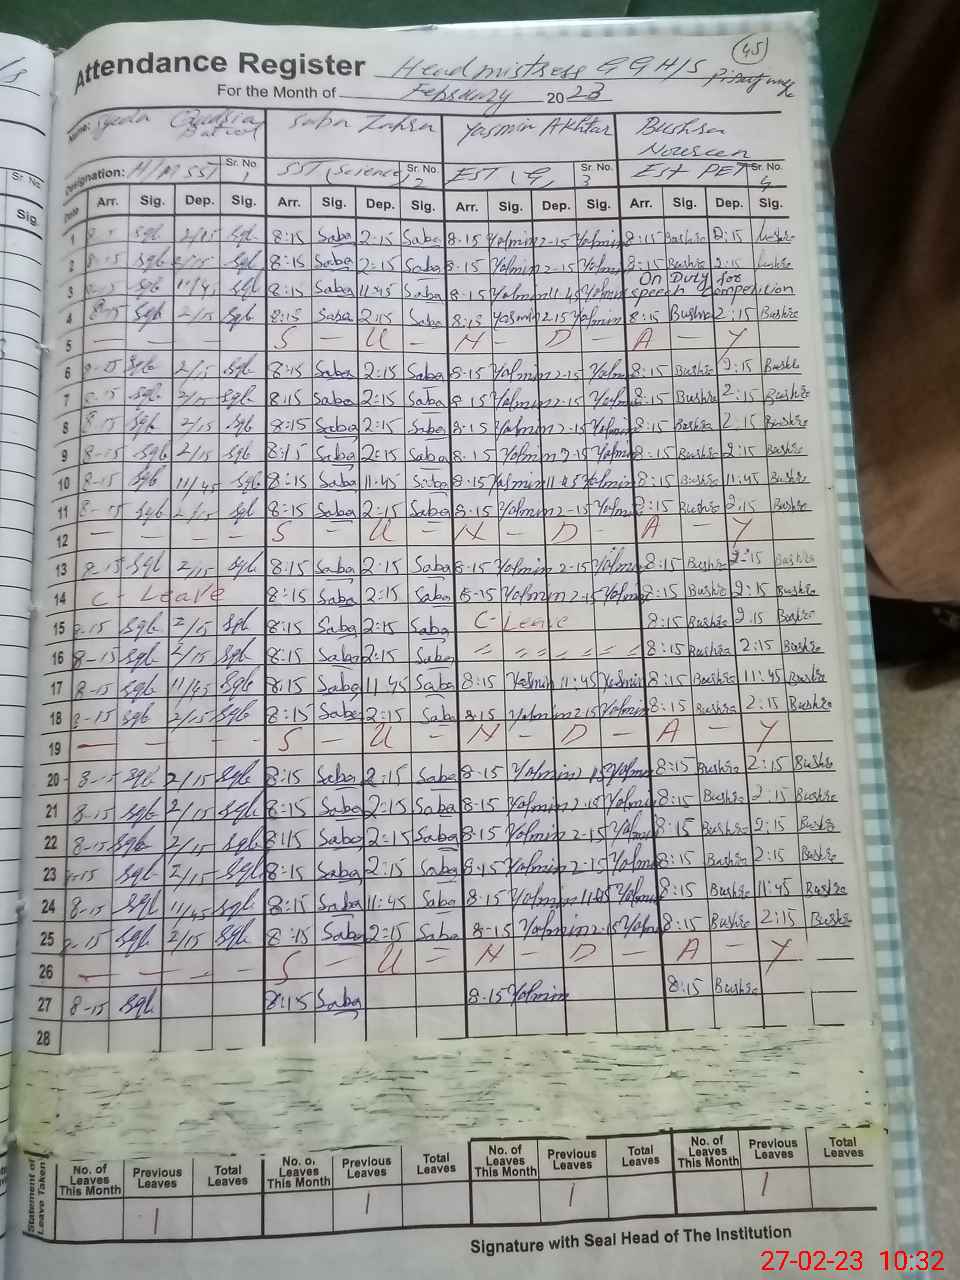 45
Attendance Register Headmistress G G H/S
For the Month of February 2023
Name: Syeda Saba Zahra Yasmin Akhtar Bushra
Batool Noureen
Designation: H/M SST Sr. No. 1 SST (Science) Sr. No. 2 EST Sr. No. 3 Est PET Sr. No. 4
Date Arr. Sig. Dep. Sig. Arr. Sig. Dep. Sig. Arr. Sig. Dep. Sig. Arr. Sig. Dep. Sig.
1 8-15 Sqb 2/15 Sqb 8:15 Saba 2:15 Saba 8-15 Yasmin 2-15 Yasmin 8:15 Bushra 2:15 Bushra
2 8-15 Sqb 2/15 Sqb 8:15 Saba 2:15 Saba 8-15 Yasmin 2-15 Yasmin 8:15 Bushra 2:15 Bushra
3 8-15 Sqb 11/45 Sqb 8:15 Saba 11:45 Saba 8-15 Yasmin 11-45 Yasmin On Duty for speech Competition
4 8-15 Sqb 2/15 Sqb 8:15 Saba 2:15 Saba 8:15 Yasmin 2-15 Yasmin 8:15 Bushra 2:15 Bushra
5 — — — — S — U — N — D — A — Y
6 8-15 Sqb 2/15 Sqb 8:15 Saba 2:15 Saba 8-15 Yasmin 2-15 Yasmin 8:15 Bushra 2:15 Bushra
7 8-15 Sqb 2/15 Sqb 8:15 Saba 2:15 Saba 8-15 Yasmin 2-15 Yasmin 8:15 Bushra 2:15 Bushra
8 8-15 Sqb 2/15 Sqb 8:15 Saba 2:15 Saba 8-15 Yasmin 2-15 Yasmin 8:15 Bushra 2:15 Bushra
9 8-15 Sqb 2/15 Sqb 8:15 Saba 2:15 Saba 8-15 Yasmin 2-15 Yasmin 8:15 Bushra 2:15 Bushra
10 8-15 Sqb 11/45 Sqb 8:15 Saba 11:45 Saba 8-15 Yasmin 11-45 Yasmin 8:15 Bushra 11:45 Bushra
11 8-15 Sqb 2/15 Sqb 8:15 Saba 2:15 Saba 8-15 Yasmin 2-15 Yasmin 8:15 Bushra 2:15 Bushra
12 — — — — S — U — N — D — A — Y
13 8-15 Sqb 2/15 Sqb 8:15 Saba 2:15 Saba 8-15 Yasmin 2-15 Yasmin 8:15 Bushra 2-15 Bushra
14 C - Leave 8:15 Saba 2:15 Saba 8-15 Yasmin 2-15 Yasmin 8:15 Bushra 2:15 Bushra
15 8-15 Sqb 2/15 Sqb 8:15 Saba 2:15 Saba C-Leave 8:15 Bushra 2:15 Bushra
16 8-15 Sqb 2/15 Sqb 8:15 Saba 2:15 Saba 〃 〃 〃 〃 〃 〃 8:15 Bushra 2:15 Bushra
17 8-15 Sqb 11/45 Sqb 8:15 Saba 11:45 Saba 8:15 Yasmin 11:45 Yasmin 8:15 Bushra 11:45 Bushra
18 8-15 Sqb 2/15 Sqb 8:15 Saba 2:15 Saba 8-15 Yasmin 2-15 Yasmin 8:15 Bushra 2:15 Bushra
19 — — — — S — U — N — D — A — Y
20 8-15 Sqb 2/15 Sqb 8:15 Saba 2:15 Saba 8-15 Yasmin 2-15 Yasmin 8:15 Bushra 2:15 Bushra
21 8-15 Sqb 2/15 Sqb 8:15 Saba 2:15 Saba 8-15 Yasmin 2-15 Yasmin 8:15 Bushra 2:15 Bushra
22 8-15 Sqb 2/15 Sqb 8:15 Saba 2:15 Saba 8-15 Yasmin 2-15 Yasmin 8:15 Bushra 2:15 Bushra
23 8-15 Sqb 2/15 Sqb 8:15 Saba 2:15 Saba 8-15 Yasmin 2-15 Yasmin 8:15 Bushra 2:15 Bushra
24 8-15 Sqb 11/45 Sqb 8:15 Saba 11:45 Saba 8-15 Yasmin 11-45 Yasmin 8:15 Bushra 11:45 Bushra
25 8-15 Sqb 2/15 Sqb 8:15 Saba 2:15 Saba 8-15 Yasmin 2-15 Yasmin 8:15 Bushra 2:15 Bushra
26 — — — — S — U — N — D — A — Y
27 8-15 Sqb 8:15 Saba 8-15 Yasmin 8:15 Bushra
28
Statement of Leave Taken No. of Leaves This Month Previous Leaves Total Leaves No. of Leaves This Month Previous Leaves Total Leaves No. of Leaves This Month Previous Leaves Total Leaves No. of Leaves This Month Previous Leaves Total Leaves
1 1 1 1
Signature with Seal Head of The Institution
Sr. No.
Sig.
27-02-23 10:32